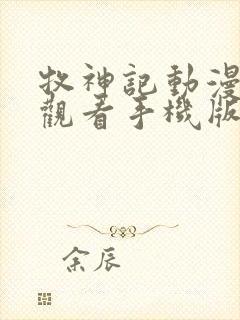 牧神記動漫
觀看手機版
余辰